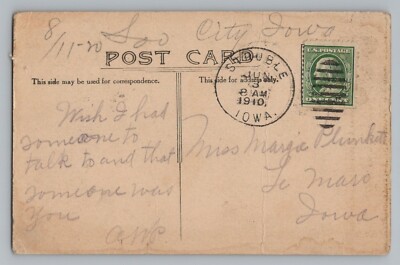 8/11-20 Sac City Iowa
POST CARD
This side may be used for correspondence.
This side is for the address only.
STRUBLE
JUN
3
8 AM
1910
IOWA.
U.S. POSTAGE
Wish I had
someone to
talk to and that
someone was
you
Miss Margie Plunkett
Le Mars
Iowa